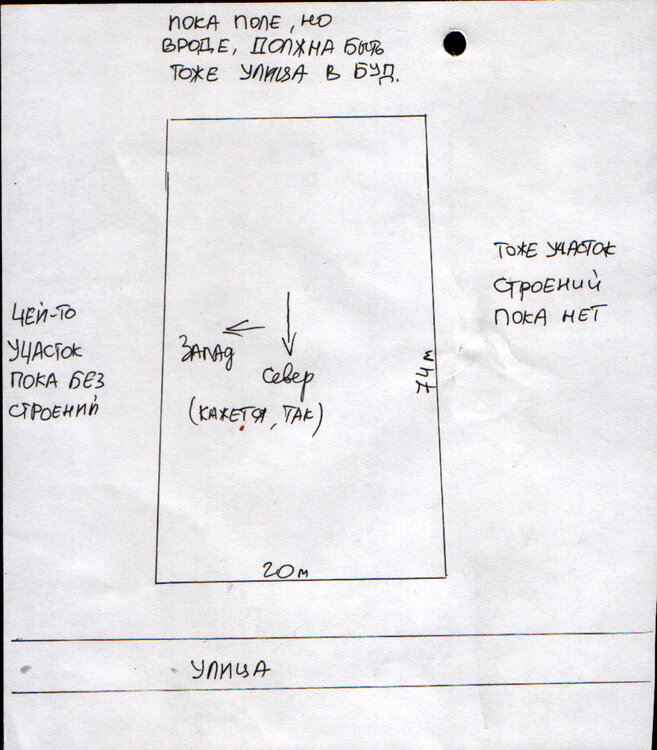 ПОКА ПОЛЕ, НО
ВРОДЕ, ДОЛЖНА БЫТЬ
ТОЖЕ УЛИЦА В БУД.
ТОЖЕ УЧАСТОК
СТРОЕНИЙ
ПОКА НЕТ
ЧЕЙ-ТО
УЧАСТОК
ПОКА БЕЗ
СТРОЕНИЙ
ЗАПАД
Север
(КАЖЕТСЯ, ТАК)
74 м
20 м
УЛИЦА